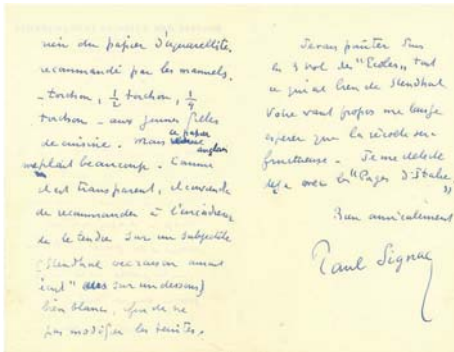 rien du papier d'aquarelliste,
recommandé par les manuels.
- torchon, 1/2 torchon, 1/4
torchon - aux jeunes filles
de cuisine. Mais ce papier
anglais
me plaît beaucoup. Comme
il est transparent, il convient
de recommander à l'encadreur
de le tendre sur un subjectile
(Stendhal
écrit sur un dessous)
bien blanc, afin de ne
pas modifier les teintes.
Je vais pointer dans
les 3 vol des "Ecoles" tout
ce qui est bien de Stendhal
Votre avant propos me laisse
espérer que la récolte sera
fructueuse. Je me délecte
déjà avec les "Pages d'Italie"
Bien amicalement
Paul Signac